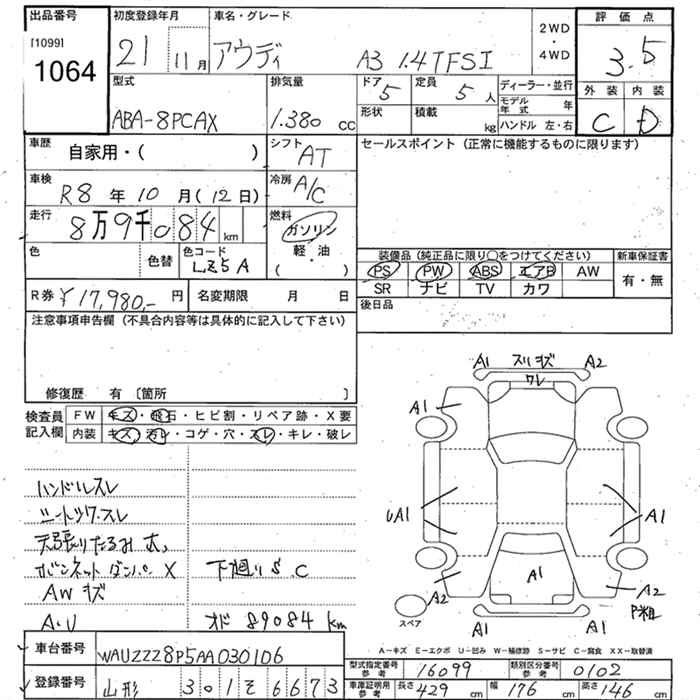 出品番号 初度登録年月 車名・グレード 2WD・4WD 評価点
[1099] 1064 21 11月 アウディ A3 1.4TFSI 3.5
外装 内装
C D
型式 排気量 ドア 定員 ディーラー・並行
ABA-8PCAX 1.380 cc 5 5人 モデル年式 年
形状 積載 kg ハンドル 左・右
車歴 自家用・( ) シフト AT セールスポイント (正常に機能するものに限ります)
車検 R8年10月(12日) 冷房 A/C
走行 8万9千084km 燃料 ガソリン 軽・油 ( )
色 色替 色コード LZ5A
装備品 (純正品に限り○をつけてください) 新車保証書
PS PW ABS エアB AW 有・無
SR ナビ TV カワ
R券 ¥17,980.- 円 名変期限 月 日 後日品
注意事項申告欄 (不具合内容等は具体的に記入して下さい)
修復歴 有 〔箇所 〕
検査員記入欄 FW キズ・飛石・ヒビ割・リペア跡・X要
内装 キズ・汚レ・コゲ・穴・スレ・キレ・破レ
A1 スリキズ A2
ワレ
A1
UA1 A1
A1
A2 A2
P粗
A1 A1
スペア
ハンドルスレ
シートワークスレ
天張りたるみ大、
ボンネットダンパX 下廻りS.C
AWキズ
A.U オド 89084km
A－キズ E－エクボ U－凹み W－補修跡 S－サビ C－腐食 XX－取替済
車台番号 WAUZZZ8P5AA030106
型式指定番号参考 16099 類別区分番号参考 0102
登録番号 山形 301そ6673
車庫証明用参考 長さ 429cm 幅 176cm 高さ 146cm